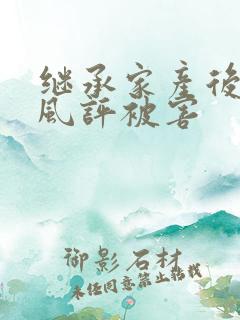 继承家产后
风评被害
御影石材
未经同意禁止转载